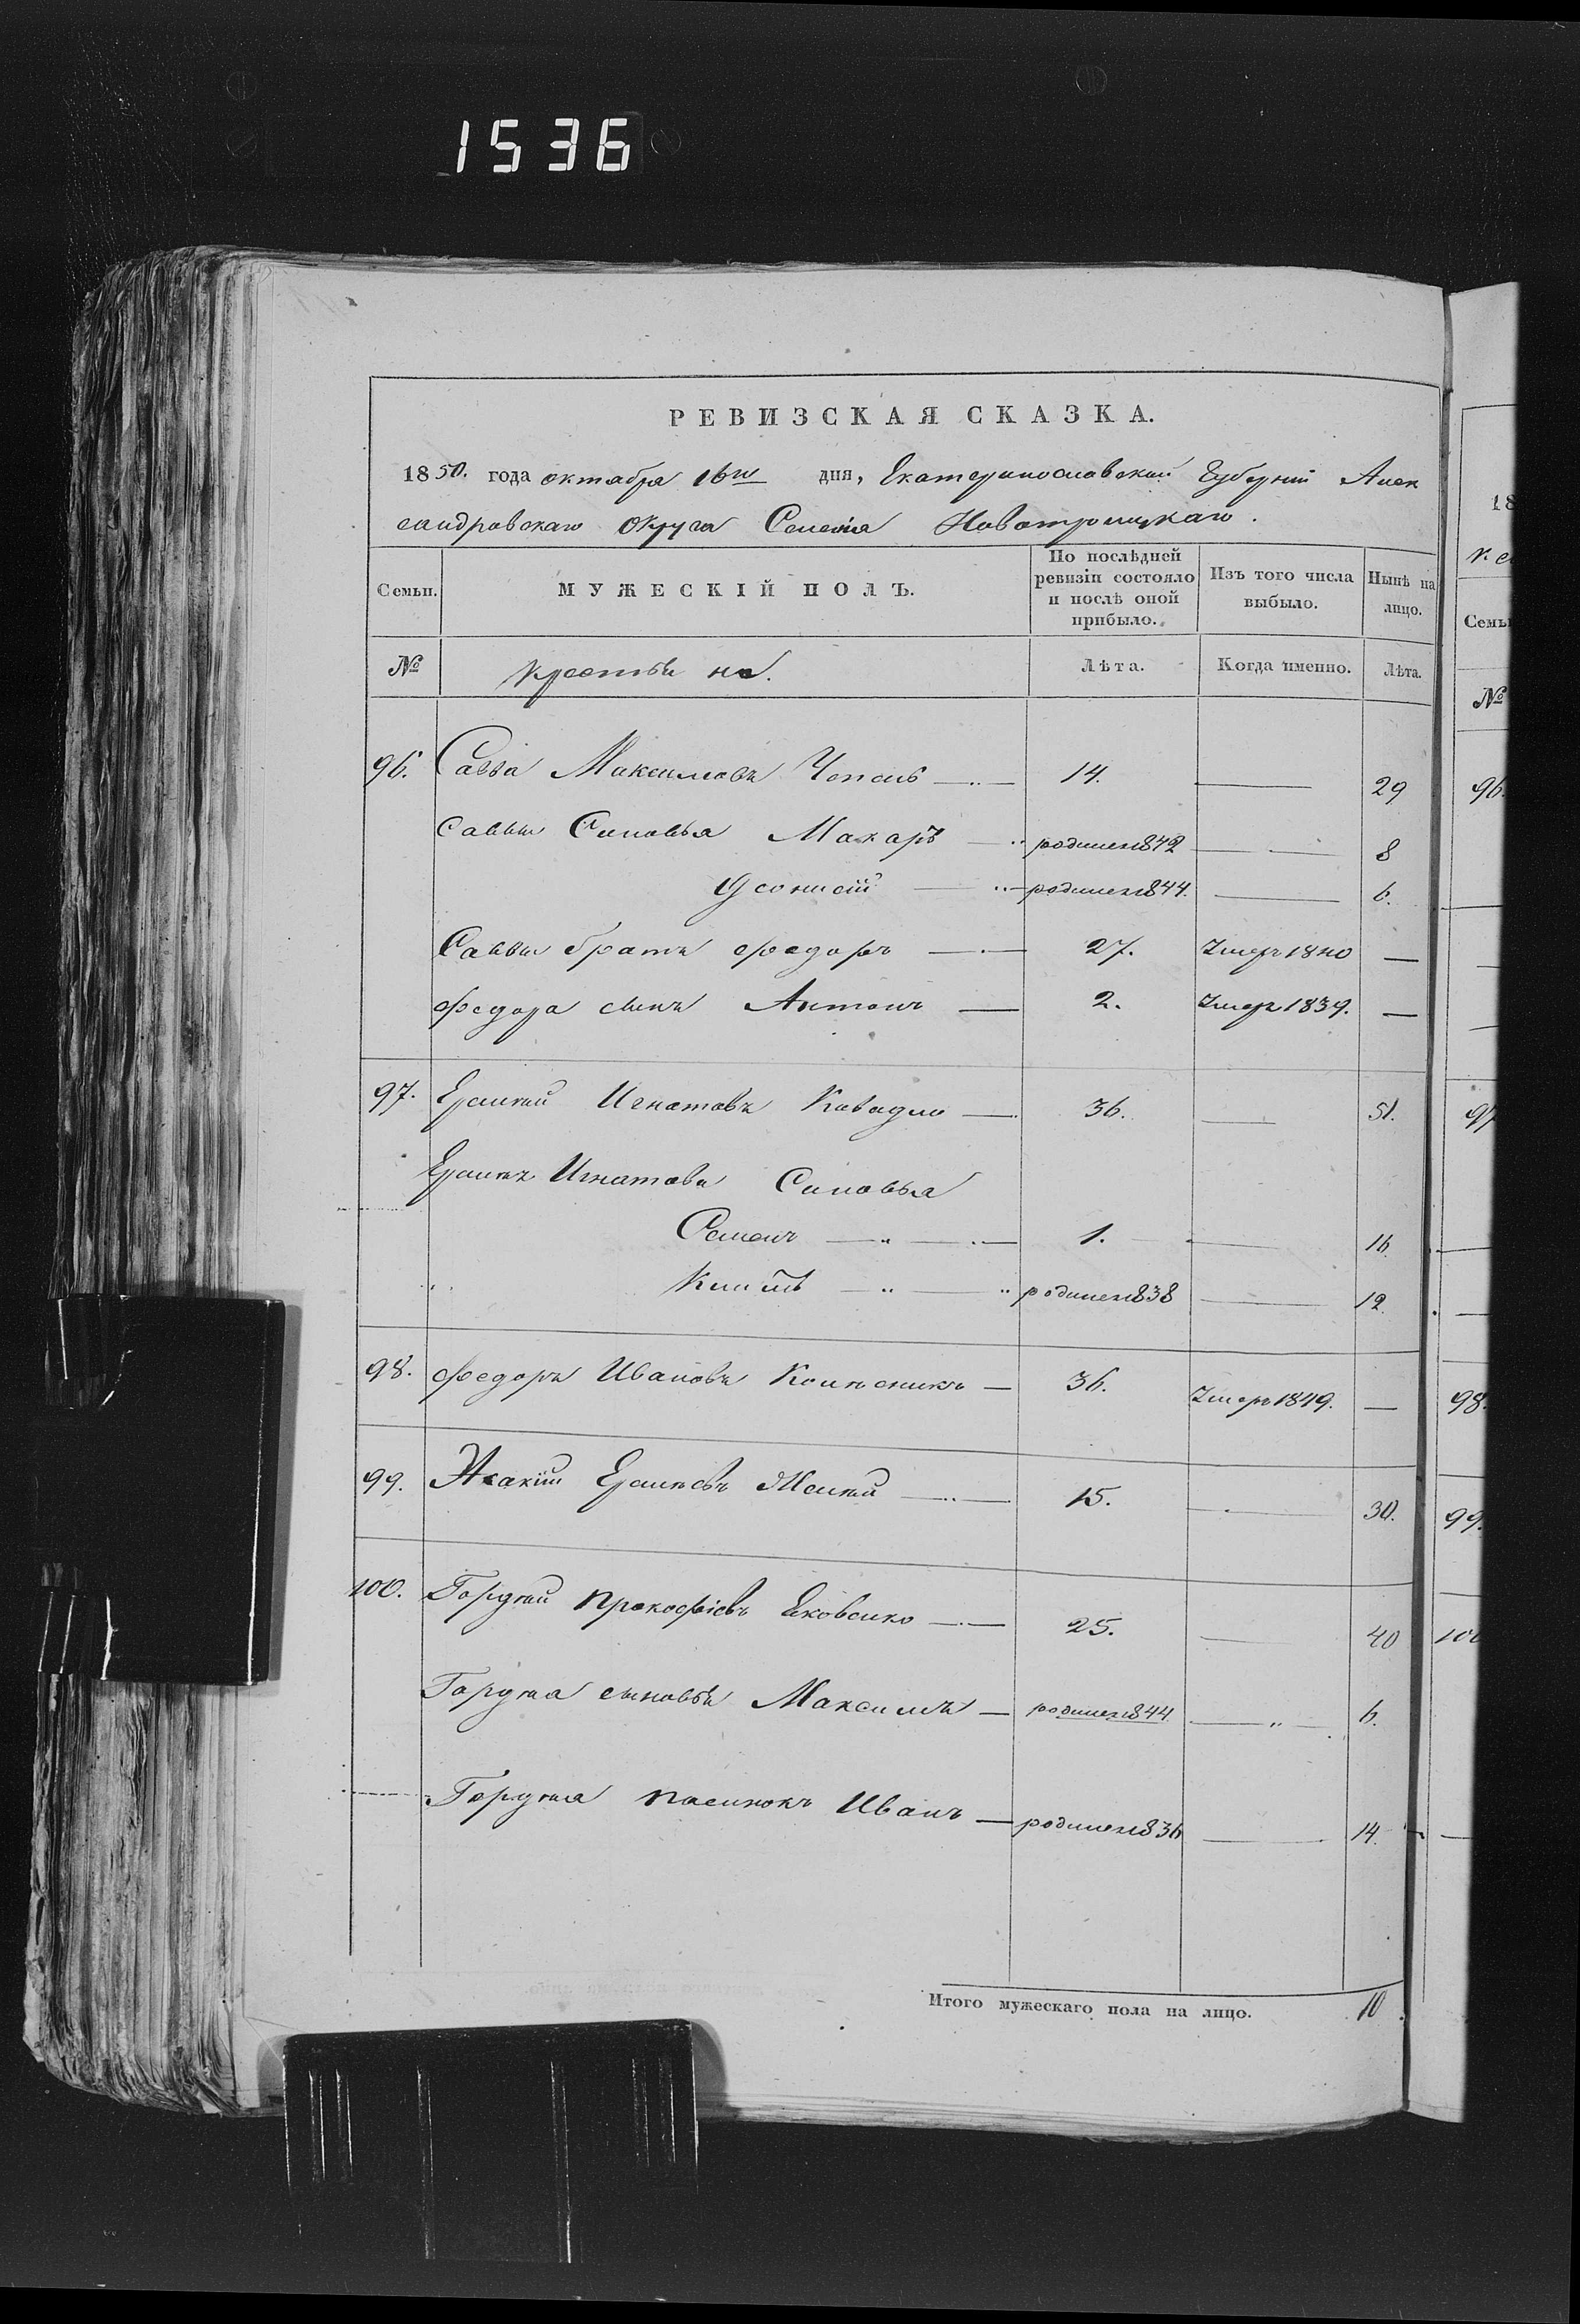 1536
РЕВИЗСКАЯ СКАЗКА.
1850. года октября 16го дня, Екатеринославской Губерніи Алек
сандровскаго Округа Селенія Новотроицкаго.
Семьи. МУЖЕСКІЙ ПОЛЪ. По послѣдней ревизіи состояло и послѣ оной прибыло. Изъ того числа выбыло. Нынѣ на лицо.
№ Лѣта. Когда именно. Лѣта.
96. Савва Максимовъ 14. — 29
Саввы Синовья Макаръ родился 1842 — 8
родился 1844. — 6.
Саввы братъ Федоръ — 27. Умеръ 1840 —
Федора сынъ Антонъ — 2. Умеръ 1839. —
97. Игнатовъ — 36. — 51.
Игнатова Синовья
Семенъ — 1. — 16
родился 1838 — 12.
98. Федоръ Ивановъ Колѣсникъ — 36. Умеръ 1849. —
99. — 15. — 30.
100. Гордѣй Прокофіевъ — 25. — 40
Гордѣя сыновья Максимъ — родился 1844 — 6.
Гордѣя пасинокъ Иванъ — родился 1836 — 14.
Итого мужескаго пола на лицо. 10
18
Семьи
№
96.
97
98.
99.
100